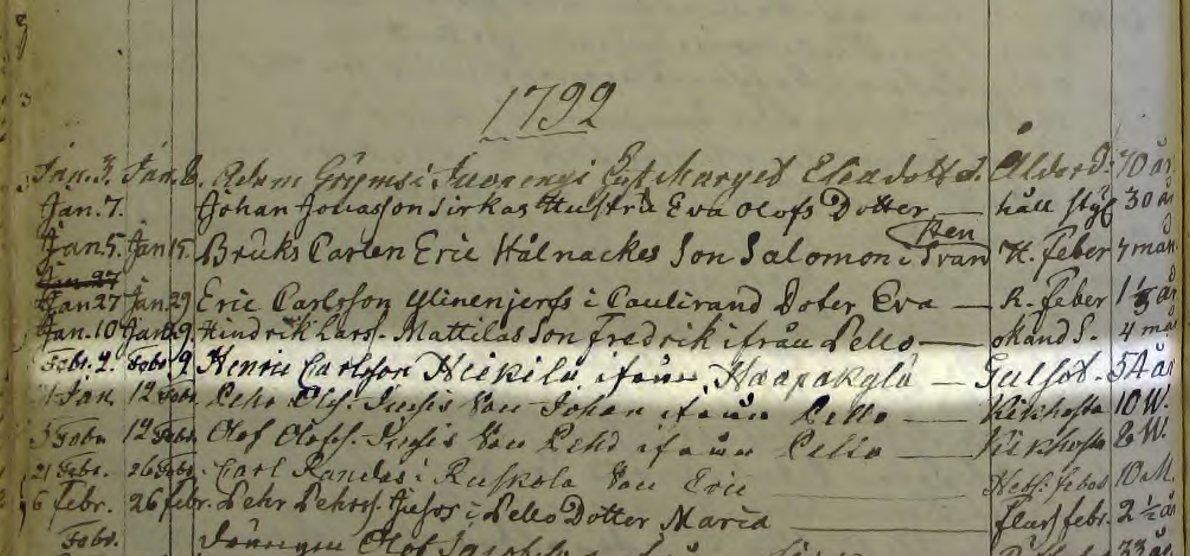 1792
Jan. 3. Jan. 8. Adam Grÿms i Juoxengi Marget Elia dotter. Ålderd. 70 år
Jan. 7. Johan Jonasson Sirkas Hustru Eva Olofs Dotter — håll styg 30 år
Ren
Jan 5. Jan 15. Bruks Carlen Eric Hålnackes Son Salomon i Svan H. feber 7 mån.
Jan 27
Jan 27 Jan. 29 Eric Carlsson Ylinenjerfs i Caulirand Doter Eva — R. feber 1 år
Jan. 10 Jan 29. Hindrik Larss. Mattilas Son Fredrik ifrån Pello — okänd S. 4 mån
Febr. 2. Febr 9 Henric Carlsson Heikilä ifrån Haapakylä — Gulsot. 54 år
Jan 12 Febr Pehr Olofs. Son Johan ifrån Pello — Kikhosta 10 W.
5 Febr 12 Febr. Olof Olofss. Son Pehr ifrån Pello — Kikhosta 8 W.
21 Febr. 26 Febr. Carl Randas i Ruskola Son Eric — Hets. feber 10 M.
6 febr. 26 febr. Pehr Pehrss. i Pello Dotter Maria — fluss febr. 2 ½ år
Febr. Drängen Olof 73 år